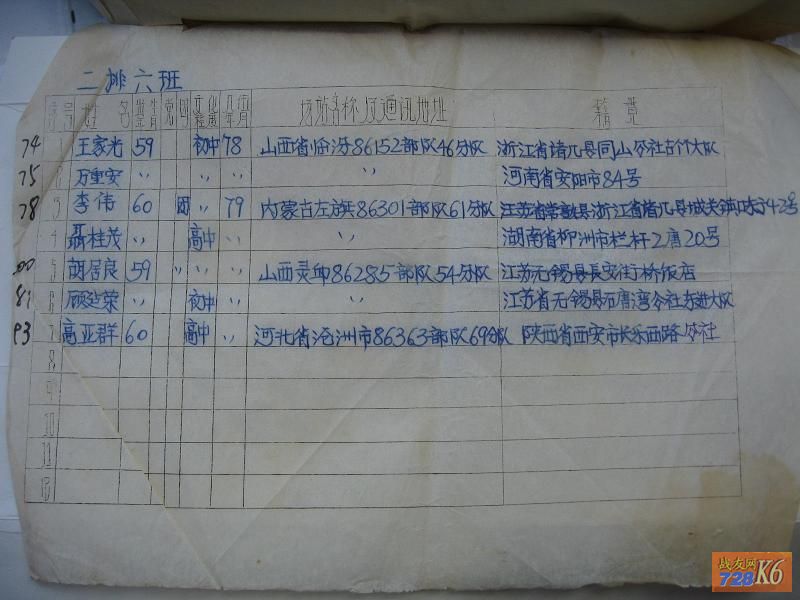 二排六班
序号 姓名 出生 党 团 文化程度 入伍年月 场站名称及通讯地址 籍贯
74 1 王家光 59 初中 78 山西省临汾86152部队46分队 浙江省诸几县同山公社古竹大队
75 2 万重安 〃 〃 〃 〃 河南省安阳市84号
78 3 李伟 60 团 〃 79 内蒙古左旗86301部队61分队 浙江省诸几县城关镇江东42号
4 聂桂茂 〃 高中 〃 〃 湖南省柳洲市栏杆2唐20号
5 胡居良 59 〃 〃 〃 山西灵邱86285部队54分队 江苏无锡县長安街桥饭店
81 6 顾延荣 〃 初中 〃 〃 江苏省无锡县石唐湾公社东进大队
93 7 高亚群 60 高中 〃 河北省沧洲市86363部队69分队 陕西省西安市长乐西路公社
8
9
10
11
12
战友网
728K6